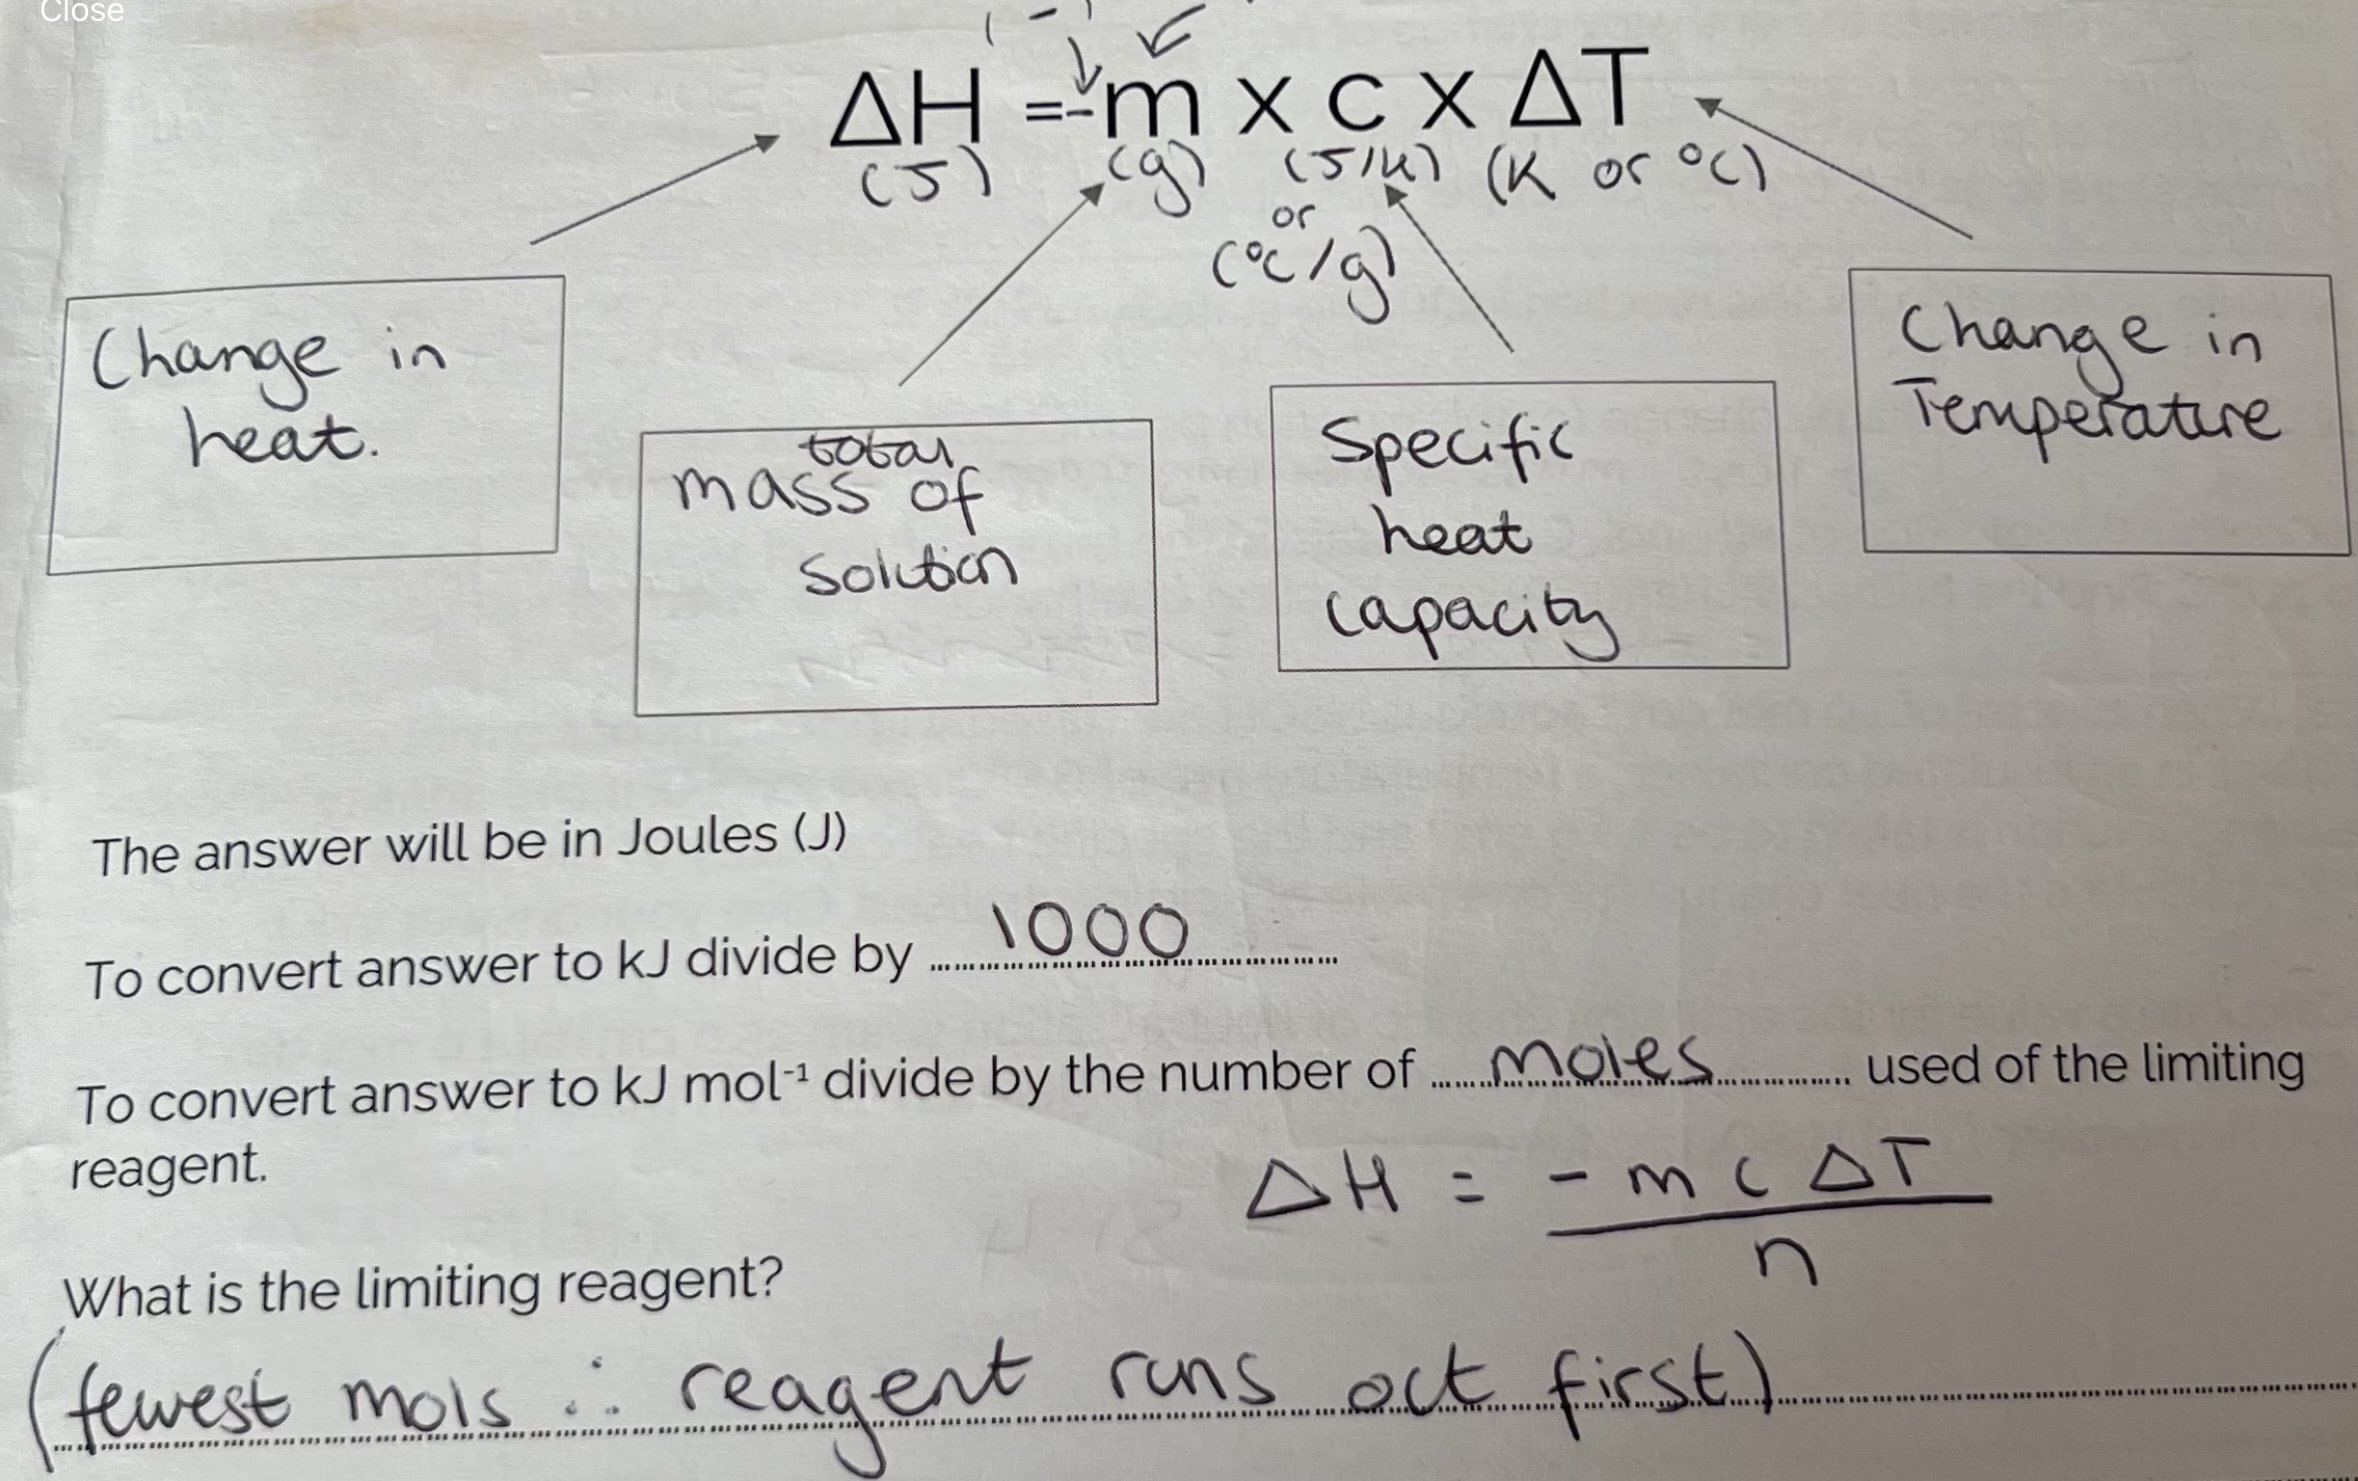 Close
( - )
ΔH = -m x c x ΔT
(J) (g) (J/K) (K or °C)
or
(°c/g)
Change in
heat.
total
mass of
solution
Specific
heat
capacity
Change in
Temperature
The answer will be in Joules (J)
To convert answer to kJ divide by 1000
To convert answer to kJ mol⁻¹ divide by the number of moles used of the limiting
reagent.
ΔH = - m c ΔT
n
What is the limiting reagent?
(fewest mols ∴ reagent runs out first)